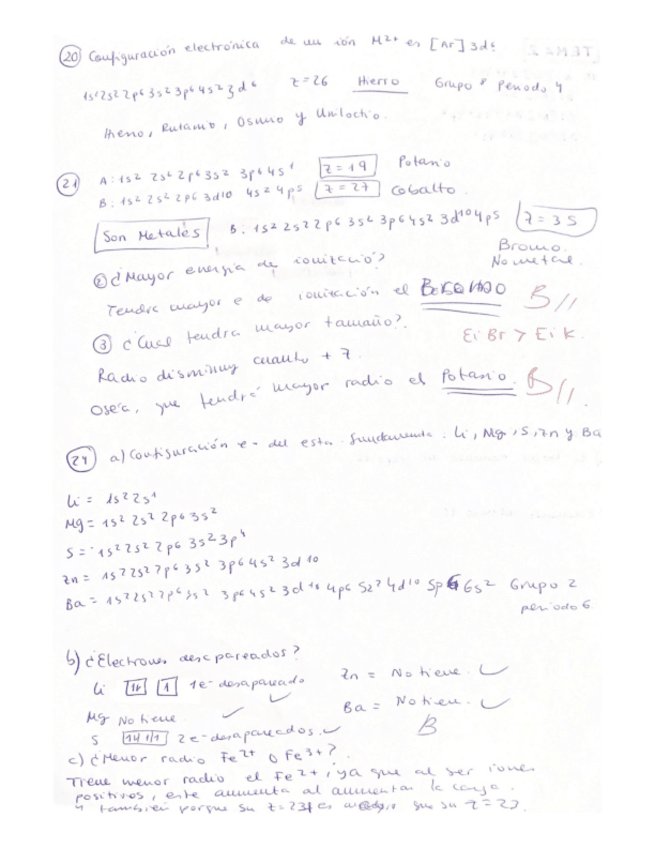 20 Configuración electrónica de un ión M²⁺ es [Ar] 3d⁶
1s²2s²2p⁶3s²3p⁶4s²3d⁶ Z=26 Hierro Grupo 8 Periodo 4
Hierro, Rutenio, Osmio y Uniloctio.
21 A: 1s² 2s² 2p⁶ 3s² 3p⁶ 4s¹ Z=19 Potasio
B: 1s² 2s² 2p⁶ 3d¹⁰ 4s² 4p⁵ Z=27 Cobalto.
Son Metales B: 1s² 2s² 2p⁶ 3s² 3p⁶ 4s² 3d¹⁰ 4p⁵ Z=35
Bromo.
No metal.
② ¿Mayor energía de ionización?
Tendrá mayor e de ionización el Bromo B//
Ei Br > Ei K.
③ ¿Cual tendrá mayor tamaño?.
Radio disminuy cuanto + Z.
Osea, que tendrá mayor radio el Potasio. B//.
24 a) Configuración e- del esta. fundamenta: Li, Mg, S, Zn y Ba
Li = 1s² 2s¹
Mg = 1s² 2s² 2p⁶ 3s²
S = 1s² 2s² 2p⁶ 3s² 3p⁴
Zn = 1s² 2s² 2p⁶ 3s² 3p⁶ 4s² 3d¹⁰
Ba = 1s² 2s² 2p⁶ 3s² 3p⁶ 4s² 3d¹⁰ 4p⁶ 5s² 4d¹⁰ 5p⁶ 6s² Grupo 2
periodo 6
b) ¿Electrones desapareados?
Li 1 1e- desapareado Zn = No tiene.
Mg No tiene Ba = No tien.
S 2e- desapareados. B
c) ¿Menor radio Fe²⁺ o Fe³⁺?
Tiene menor radio el Fe²⁺, ya que al ser iones
positivos, este aumenta al aumentar la carga.
y también porque su Z=23 es que su Z=23.